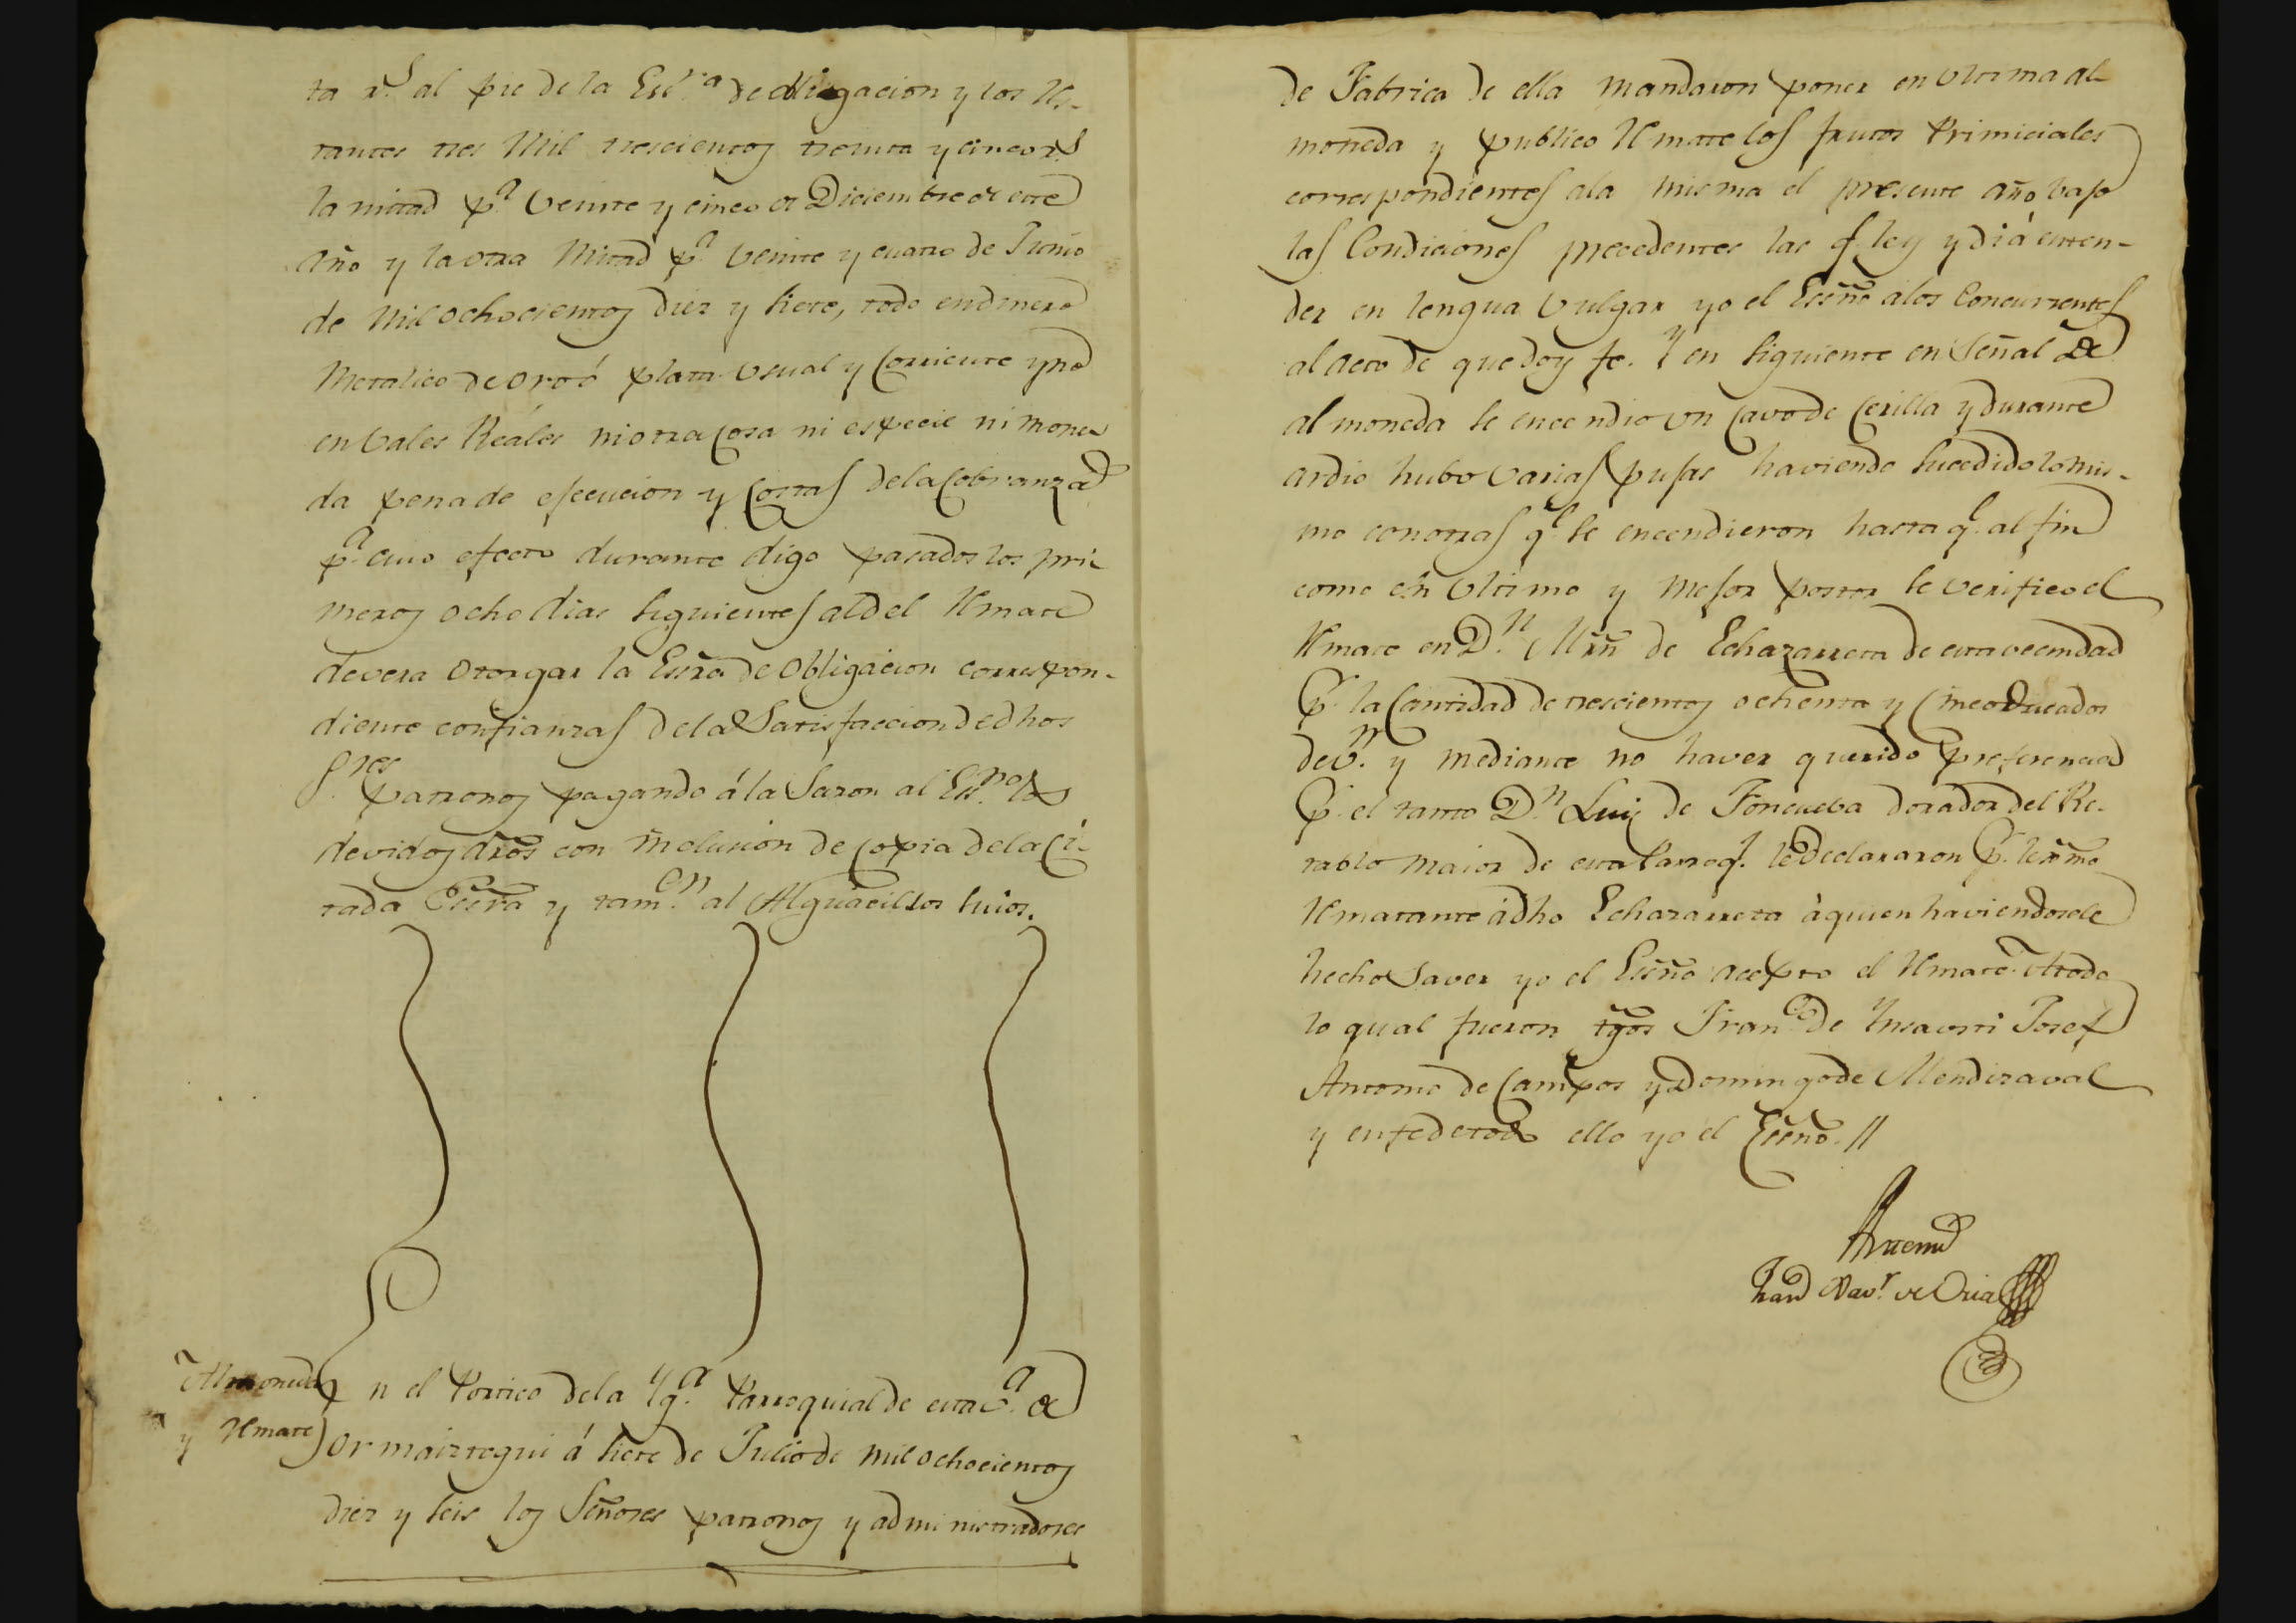 ta r.s al pie de la Esc.ra de obligacion y los Res-
tantes tres Mil trescientos treinta y cinco r.s
la mitad p.a veinte y cinco de Diciembre de este
año y la otra Mitad p.a veinte y cuatro de Junio
de Mil ochocientos diez y siete, todo en dinero
Metalico de oro ó plata usual y Corriente y no
en Vales Reáles ni otra Cosa ni especie ni mone-
da pena de ejecucion y Costas de la Cobranza
p.a cuio efecto durante digo pasados los pri-
meros ocho dias siguientes al del Remate
devera otorgar la Essra de obligacion correspon-
diente con fianzas de la Satisfaccion de dhos
S.res patronos pagando á la Sazon al Es.no los
devidos dros con inclusion de copia de la Ci-
tada Essra y tam.en al Alguacil los suios.
Almoneda
y Remate
En el Portico de la Yg.a Parroquial de esta v.a de
Ormaiztegui á siete de Julio de mil ochocientos
diez y seis los Señores patronos y administradores
de Fabrica de ella mandaron poner en ultima al-
moneda y publico Remate los frutos Primiciales
correspondientes ala misma el presente año bajo
las Condiciones precedentes las q.e ley y di á enten-
der en lengua vulgar yo el Essño á los Concurrentes
al acto de que doy fe. Y en siguiente en Señal de
almoneda se encendio un Cavo de Cerilla y durante
ardio hubo varias pujas haviendo sucedido lo mis-
mo con otras q.e se encendieron hasta q.e al fin
como en ultimo y Mejor postor se verifico el
Remate en D.n Mrñ de Echazarreta de esta vecindad
p.r la Cantidad de trescientos ochenta y Cinco Ducados
de v.n y mediante no haver querido preferencia
p.r el tanto D.n Luis de Foncueba dorador del Re-
tablo maior de esta Parroq.l le declararon p.r lexmo
Rematante á dho Echazarreta à quien haviendosele
hecho Saver yo el Essño acepto el Remate. A todo
lo qual fueron tgos Fran.co de Ynsausti Josef
Antonio de Campos y Domingo de Mendizaval
y en fe de todo ello yo el Essño. //
Ante mi
Fran.co Xav.r de Oria